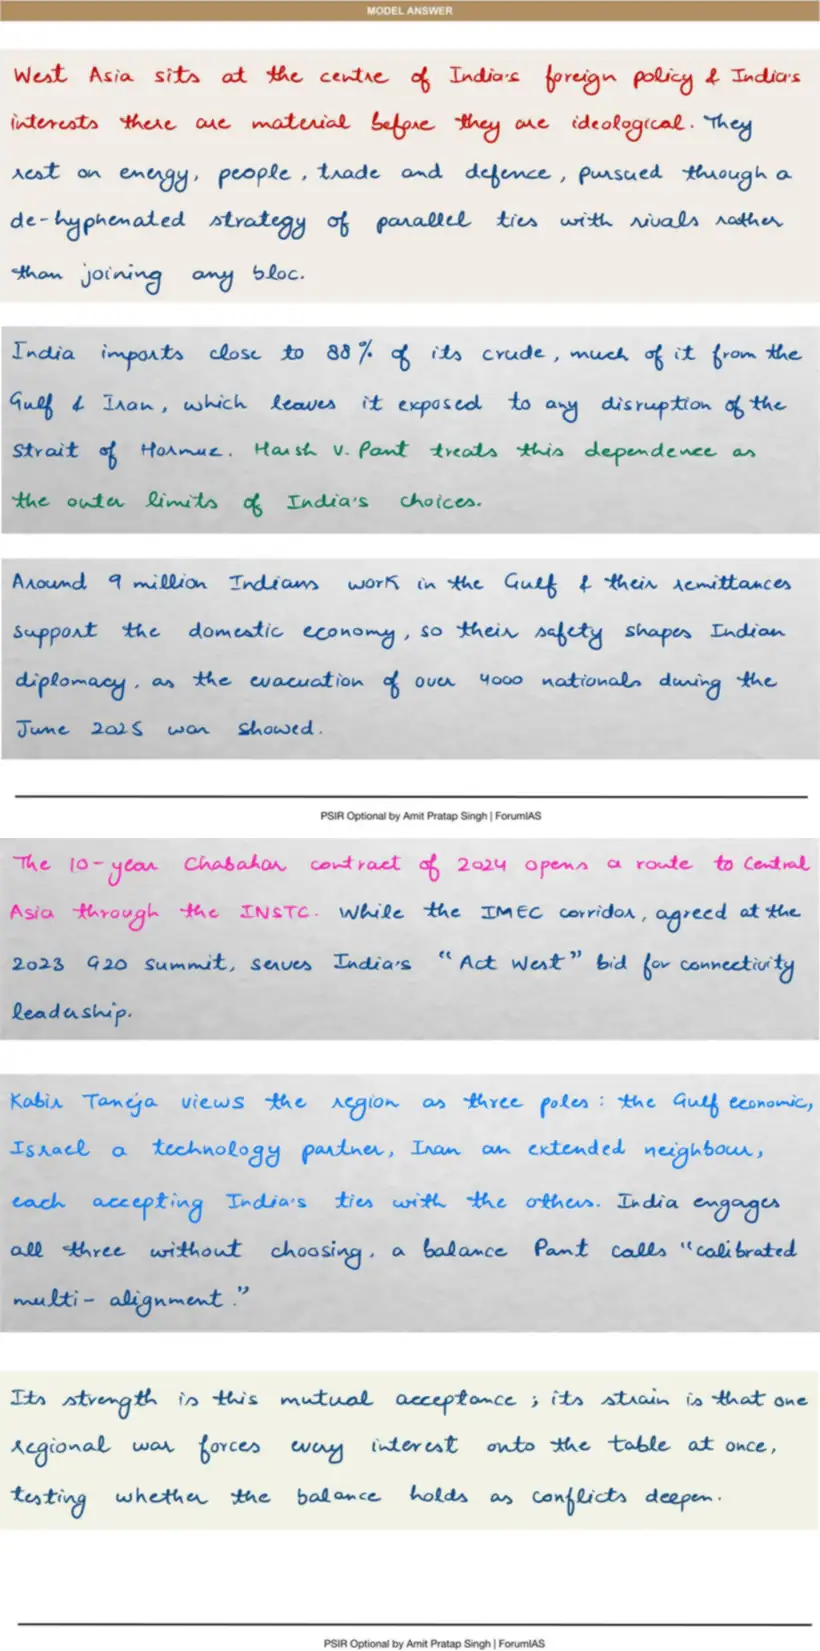 MODEL ANSWER
West Asia sits at the centre of India's foreign policy & India's
interests there are material before they are ideological. They
rest on energy, people, trade and defence, pursued through a
de-hyphenated strategy of parallel ties with rivals rather
than joining any bloc.
India imports close to 88% of its crude, much of it from the
Gulf & Iran, which leaves it exposed to any disruption of the
Strait of Hormuz. Harsh V. Pant treats this dependence as
the outer limits of India's choices.
Around 9 million Indians work in the Gulf & their remittances
support the domestic economy, so their safety shapes Indian
diplomacy, as the evacuation of over 4000 nationals during the
June 2025 war showed.
PSIR Optional by Amit Pratap Singh | ForumIAS
The 10-year Chabahar contract of 2024 opens a route to Central
Asia through the INSTC. While the IMEC corridor, agreed at the
2023 G20 summit, serves India's "Act West" bid for connectivity
leadership.
Kabir Taneja views the region as three poles: the Gulf economic,
Israel a technology partner, Iran an extended neighbour,
each accepting India's ties with the others. India engages
all three without choosing, a balance Pant calls "calibrated
multi-alignment."
Its strength is this mutual acceptance; its strain is that one
regional war forces every interest onto the table at once,
testing whether the balance holds as conflicts deepen.
PSIR Optional by Amit Pratap Singh | ForumIAS